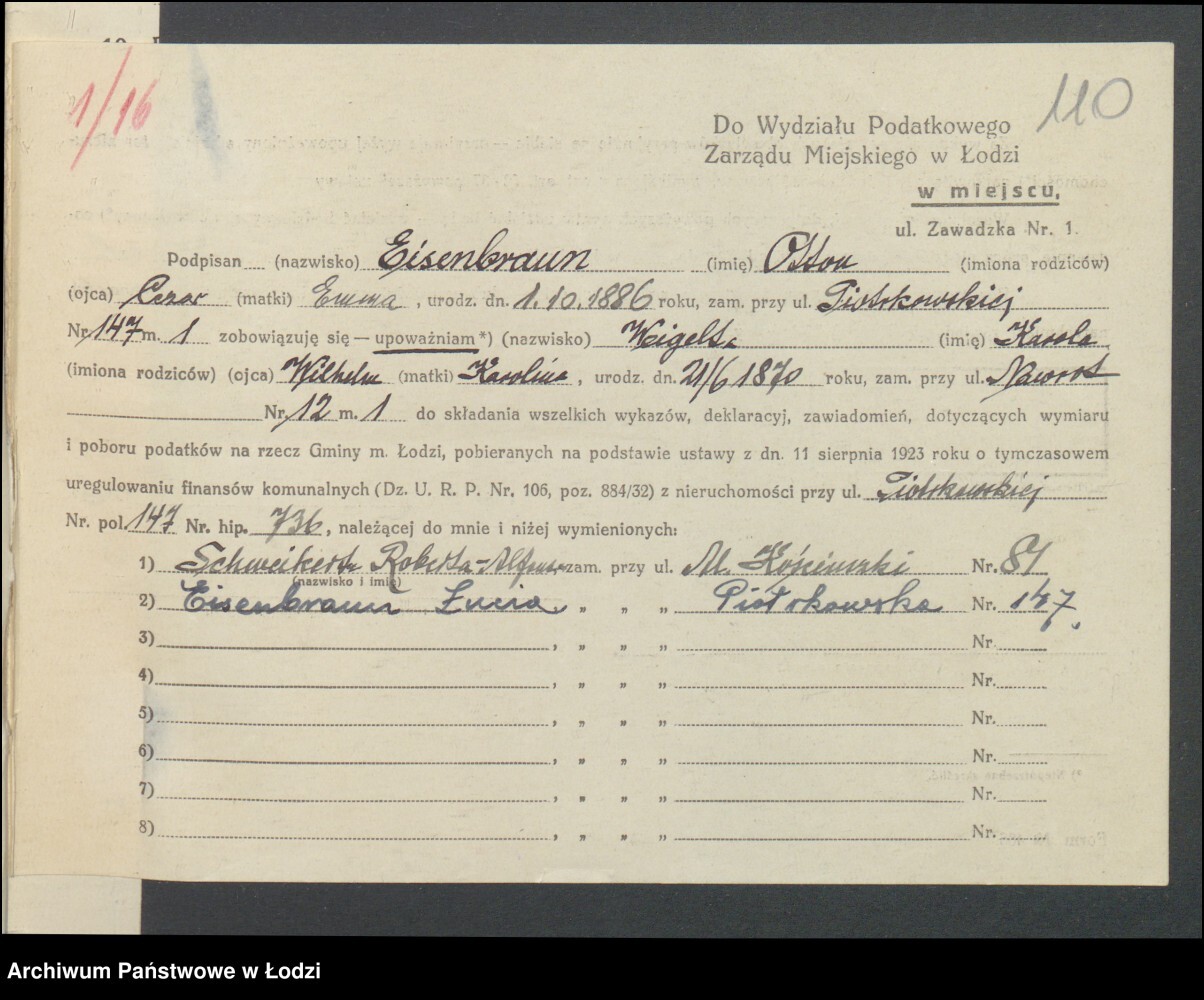 1/16
110
Do Wydziału Podatkowego
Zarządu Miejskiego w Łodzi
w miejscu,
ul. Zawadzka Nr. 1.
Podpisan (nazwisko) Eisenbraun (imię) Otton (imiona rodziców)
(ojca) Cezar (matki) Emma, urodz. dn. 1.10.1886 roku, zam. przy ul. Piotrkowskiej
Nr. 147 m. 1 zobowiązuję się — upoważniam *) (nazwisko) Weigelta (imię) Karola
(imiona rodziców) (ojca) Wilhelm (matki) Karolina, urodz. dn. 21/6 1870 roku, zam. przy ul. Nawrot
Nr. 12 m. 1 do składania wszelkich wykazów, deklaracyj, zawiadomień, dotyczących wymiaru
i poboru podatków na rzecz Gminy m. Łodzi, pobieranych na podstawie ustawy z dn. 11 sierpnia 1923 roku o tymczasowem
uregulowaniu finansów komunalnych (Dz. U. R. P. Nr. 106, poz. 884/32) z nieruchomości przy ul. Piotrkowskiej
Nr. pol. 147 Nr. hip. 736, należącej do mnie i niżej wymienionych:
1) Schweikerta Roberta-Alfonsa zam. przy ul. Al. Kościuszki Nr. 81
(nazwisko i imię)
2) Eisenbraun Łucia, „ „ „ Piotrkowska Nr. 147.
3) , „ „ „ Nr.
4) , „ „ „ Nr.
5) , „ „ „ Nr.
6) , „ „ „ Nr.
7) , „ „ „ Nr.
8) , „ „ „ Nr.
Archiwum Państwowe w Łodzi